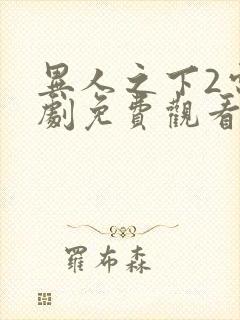 異人之下2
劇免費觀看
羅布森